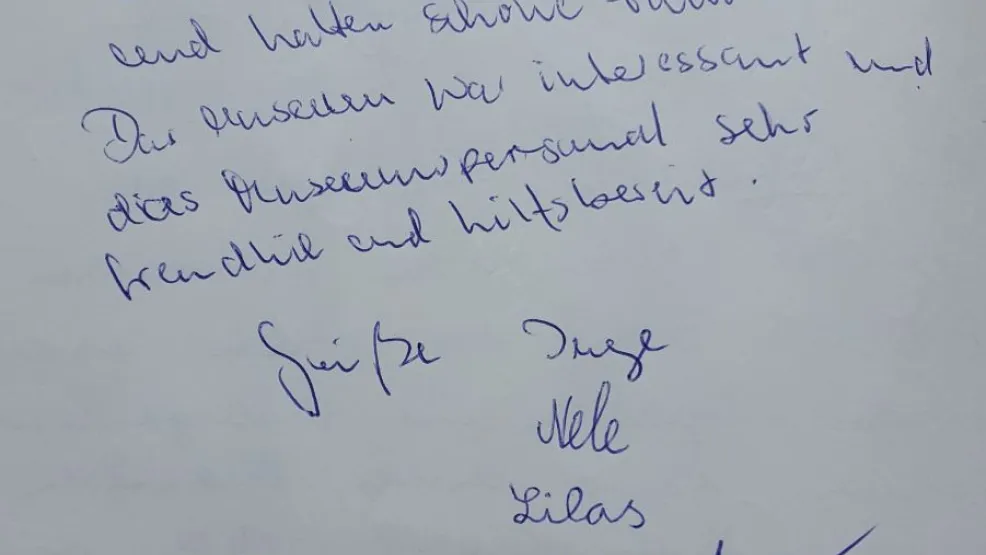 und hatten schöne
Das Museum war interessant und
das Museumspersonal sehr
freundlich und hilfsbereit.
Grüße Inge
Nele
Lilas